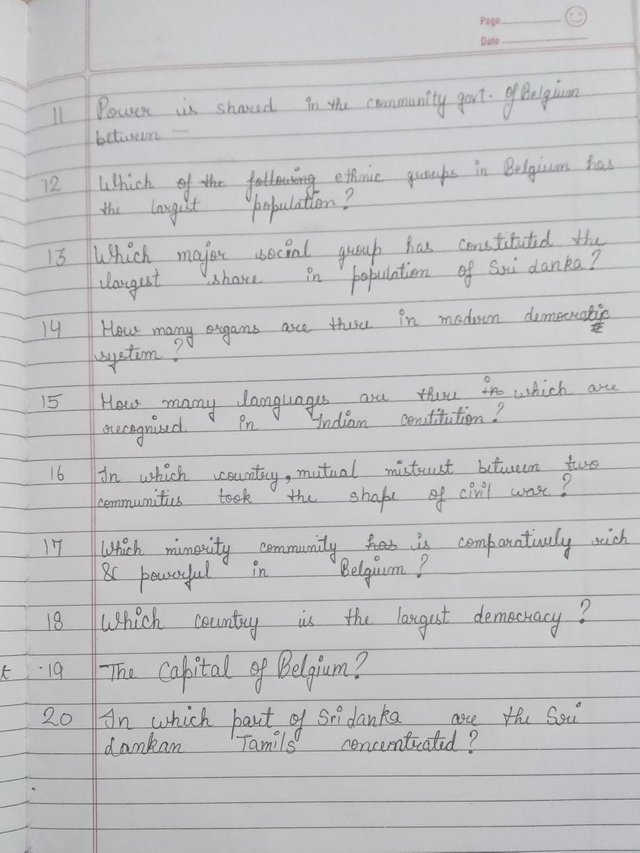 Page
Date
11 Power is shared in the community govt. of Belgium
between —
12 Which of the following ethnic groups in Belgium has
the largest population?
13 Which major social group has constituted the
largest share in population of Sri Lanka?
14 How many organs are there in modern democratic
system?
15 How many languages are there in which are
recognised in Indian constitution?
16 In which country, mutual mistrust between two
communities took the shape of civil war?
17 Which minority community has is comparatively rich
& powerful in Belgium?
18 Which country is the largest democracy?
19 The Capital of Belgium?
20 In which part of Sri Lanka are the Sri
Lankan Tamils concentrated?